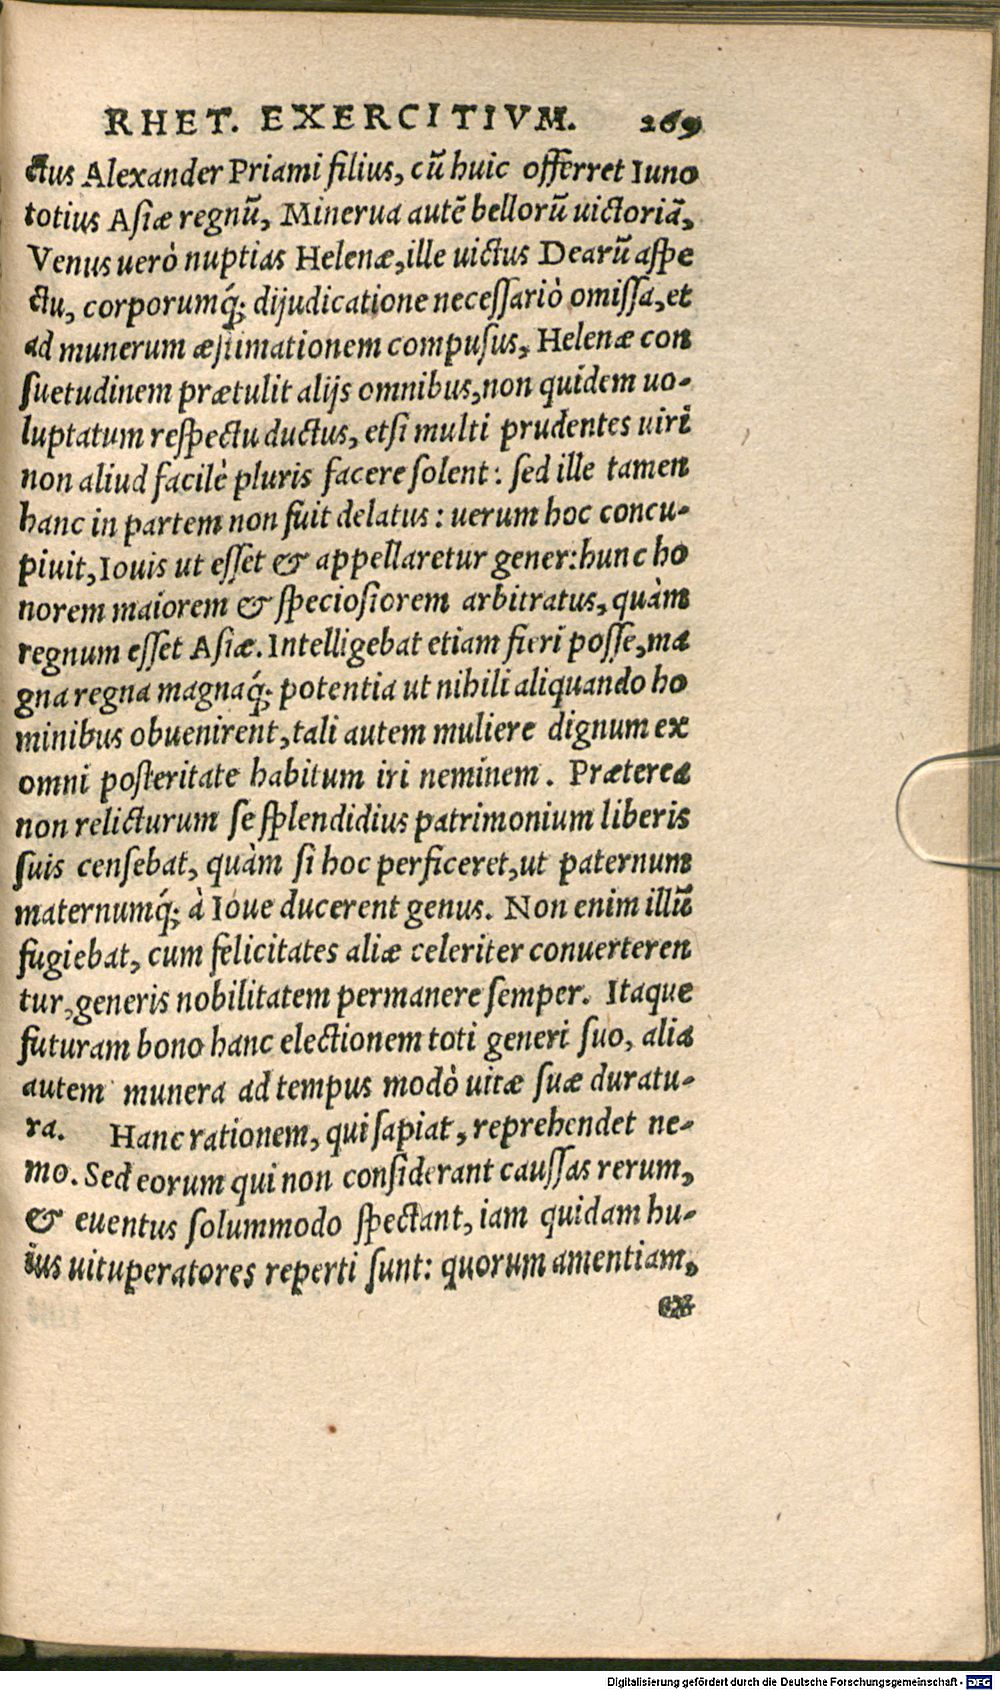 RHET. EXERCITIVM. 269
ctus Alexander Priami filius, cū huic offerret Iuno
totius Asiæ regnū, Minerua autē bellorū uictoriā,
Venus uerò nuptias Helenæ, ille uictus Dearū aspe
ctu, corporumq́; dijudicatione necessariò omissa, et
ad munerum æstimationem compusus, Helenæ con
suetudinem prætulit alijs omnibus, non quidem uo-
luptatum respectu ductus, etsi multi prudentes uiri
non aliud facilè pluris facere solent: sed ille tamen
hanc in partem non fuit delatus: uerum hoc concu-
piuit, Iouis ut esset & appellaretur gener: hunc ho
norem maiorem & speciosiorem arbitratus, quàm
regnum esset Asiæ. Intelligebat etiam fieri posse, ma
gna regna magnaq́; potentia ut nihili aliquando ho
minibus obuenirent, tali autem muliere dignum ex
omni posteritate habitum iri neminem. Præterea
non relicturum se splendidius patrimonium liberis
suis censebat, quàm si hoc perficeret, ut paternum
maternumq́; à Ioue ducerent genus. Non enim illū
fugiebat, cum felicitates aliæ celeriter conuerteren
tur, generis nobilitatem permanere semper. Itaque
futuram bono hanc electionem toti generi suo, alia
autem munera ad tempus modò uitæ suæ duratu-
ra. Hanc rationem, qui sapiat, reprehendet ne-
mo. Sed eorum qui non considerant caussas rerum,
& euentus solummodo spectant, iam quidam hu-
ius uituperatores reperti sunt: quorum amentiam,
ex
Digitalisierung gefördert durch die Deutsche Forschungsgemeinschaft - DFG